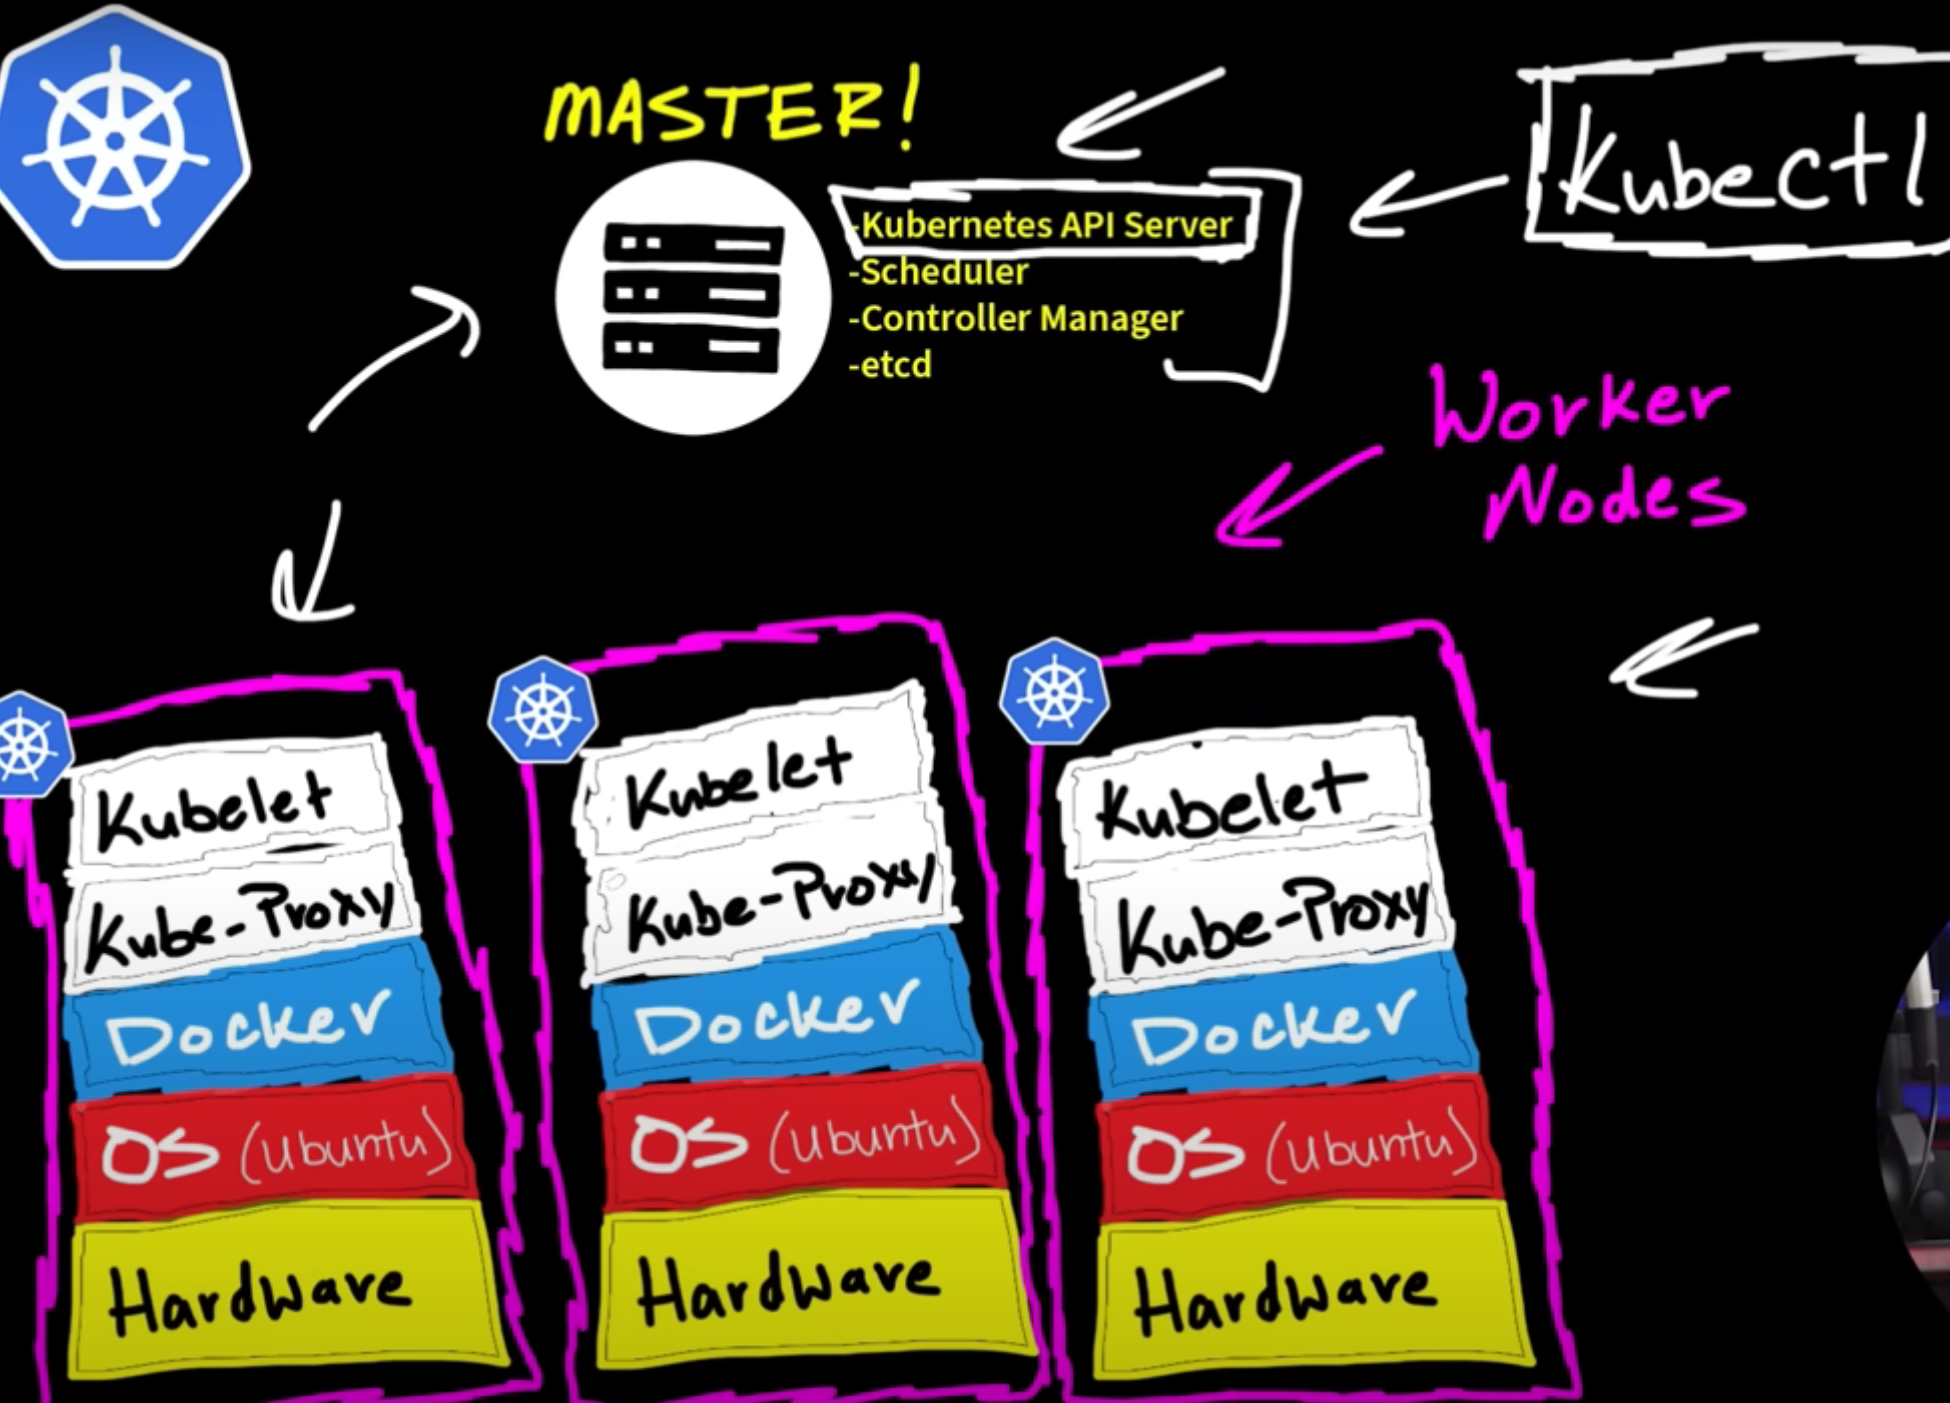 MASTER!
Kubectl
-Kubernetes API Server
-Scheduler
-Controller Manager
-etcd
Worker
Nodes
Kubelet
Kube-Proxy
Docker
OS (Ubuntu)
Hardware
Kubelet
Kube-Proxy
Docker
OS (Ubuntu)
Hardware
Kubelet
Kube-Proxy
Docker
OS (Ubuntu)
Hardware